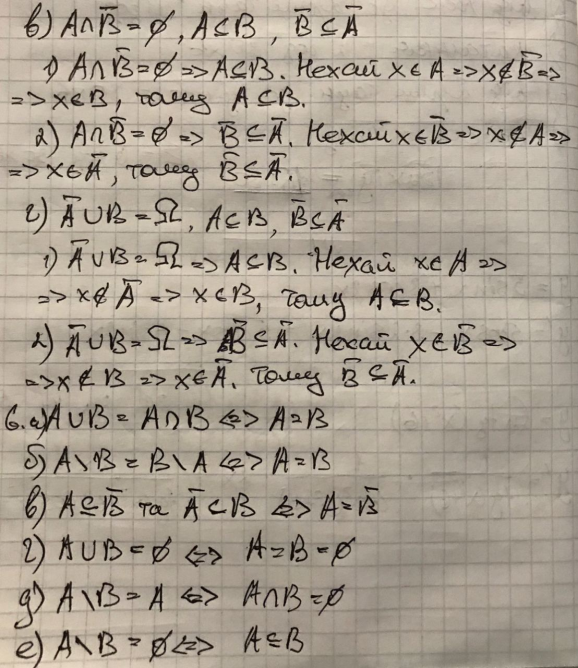 в) A∩B̅ = ∅, A⊆B, B̅⊆A̅
1) A∩B̅ = ∅ => A⊆B. Нехай x∈A => x∉B̅ =>
=> x∈B, тому A⊆B.
2) A∩B̅ = ∅ => B̅⊆A̅. Нехай x∈B̅ => x∉A =>
=> x∈A̅, тому B̅⊆A̅.
г) A̅∪B = Ω, A⊆B, B̅⊆A̅
1) A̅∪B = Ω => A⊆B. Нехай x∈A =>
=> x∉A̅ => x∈B, тому A⊆B.
2) A̅∪B = Ω => B̅⊆A̅. Нехай x∈B̅ =>
=> x∉B => x∈A̅. Тому B̅⊆A̅.
6. а) A∪B = A∩B <=> A=B
б) A\B = B\A <=> A=B
в) A⊆B̅ та A̅⊂B <=> A=B̅
г) A∪B = ∅ <=> A=B=∅
д) A\B = A <=> A∩B=∅
е) A\B = ∅ <=> A⊆B